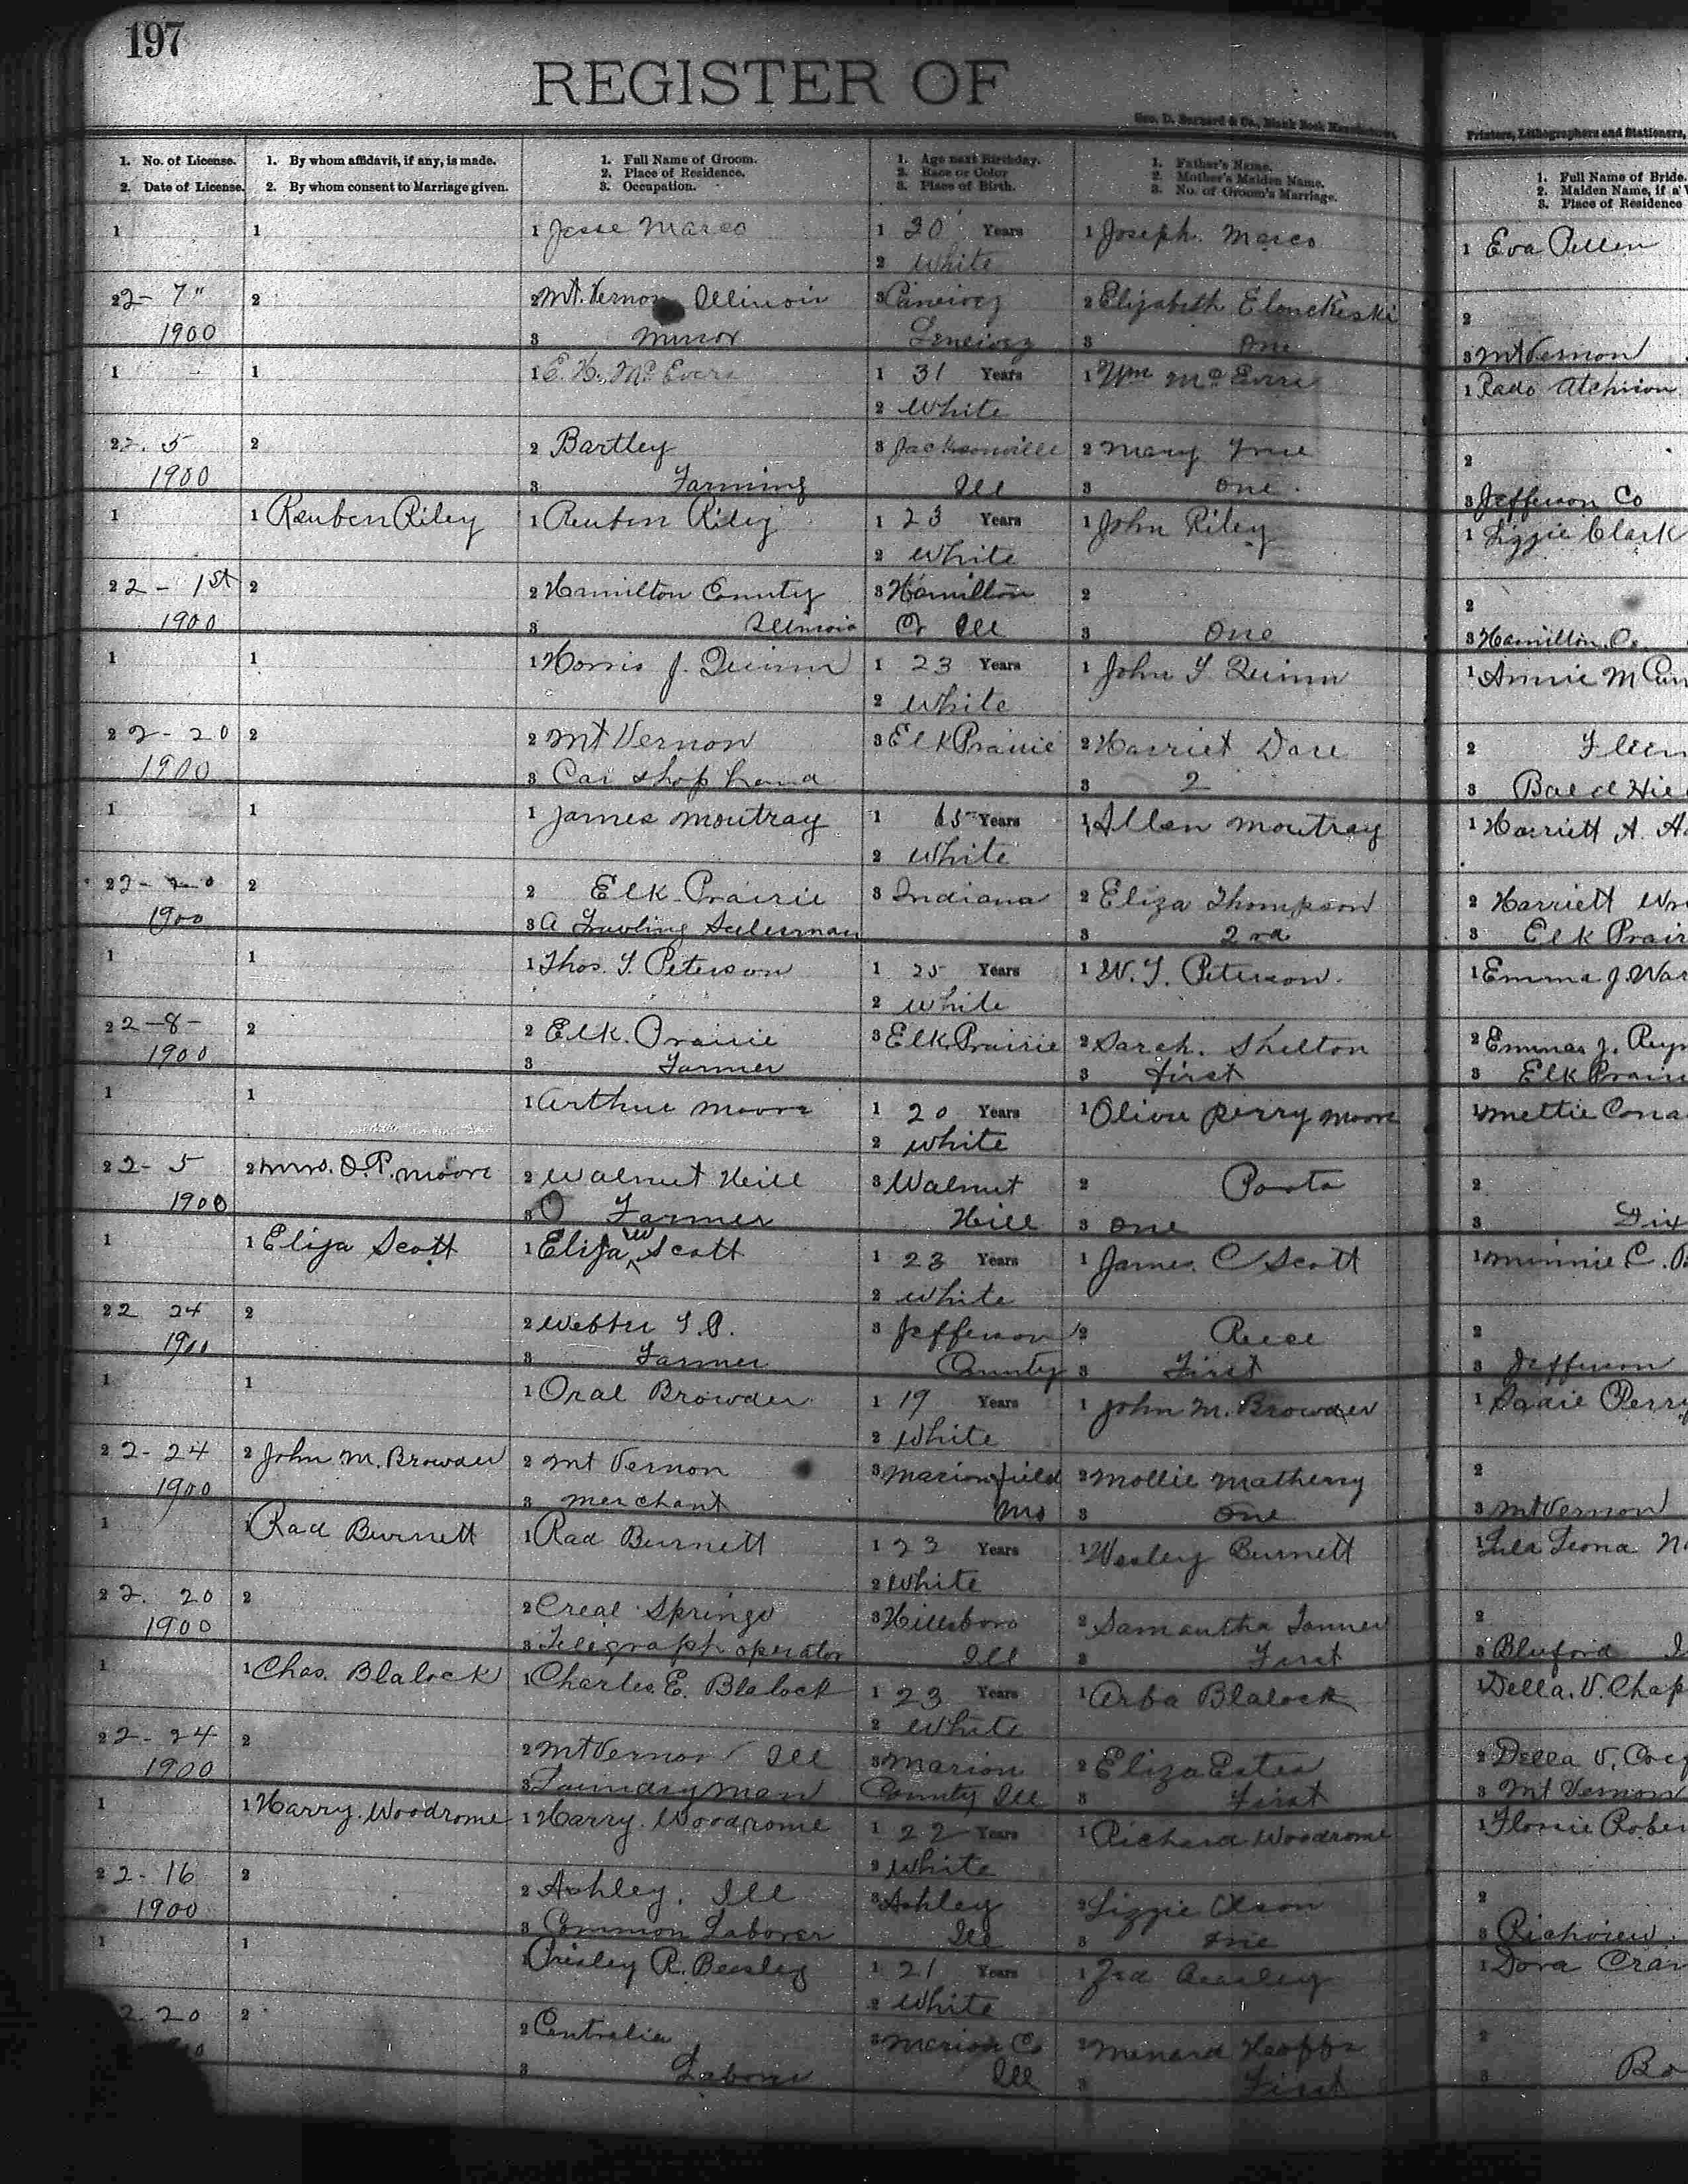 197
REGISTER OF
Geo. D. Barnard & Co., Blank Book Manufacturers,
Printers, Lithographers and Stationers,
1. No. of License. 1. By whom affidavit, if any, is made. 1. Full Name of Groom. 1. Age next Birthday. 1. Father's Name. 1. Full Name of Bride.
2. Place of Residence. 2. Race or Color 2. Mother's Maiden Name. 2. Maiden Name, if a
2. Date of License. 2. By whom consent to Marriage given. 3. Occupation. 3. Place of Birth. 3. No. of Groom's Marriage. 3. Place of Residence
1 1 1 Jesse Marco 1 20 Years 1 Joseph Marco 1 Eva Pellen
2 White
2 2- 7" 2 2 Mt. Vernon Illinois 3 2 Elizabeth 2
1900 3 3 One 3 Mt Vernon
1 1 1 E. H. McEvers 1 31 Years 1 Wm McEvers 1 Rado Atchison
2 White
2 2. 5 2 2 Bartley 3 Jacksonville 2 Mary 2
1900 3 Farming Ill 3 One. 3 Jefferson Co
1 1 Reuben Riley 1 Reuben Riley 1 23 Years 1 John Riley 1 Lizzie Clark
2 White
2 2 - 1st 2 2 Hamilton County 3 Hamilton 2 2
1900 3 Illinois Co Ill 3 One 3 Hamilton Co
1 1 1 Harris J. Quinn 1 23 Years 1 John T Quinn 1 Annie M
2 White
2 2-20 2 2 Mt Vernon 3 Elk Prairie 2 Harriet Dare 2
1900 3 Car shop hand 3 2 3 Bald Hil
1 1 1 James Moutray 1 65 Years 1 Allen Moutray 1 Harriett A.
2 White
2 2-20 2 2 Elk Prairie 3 Indiana 2 Eliza Thompson 2 Harriett
1900 3 A Travling Salesman 3 2nd 3 Elk Prair
1 1 1 Thos. T. Peterson 1 25 Years 1 W. T. Peterson. 1 Emma J. War
2 White
2 2-8- 2 2 Elk. Prairie 3 Elk Prairie 2 Sarah. Shelton 2 Emma J. Reyn
1900 3 Farmer 3 first 3 Elk Prairi
1 1 1 Arthur Moore 1 20 Years 1 Oliver perry Moore 1 Mettie Cona
2 White
2 2- 5 2 Mrs. O.P. Moore 2 Walnut Hill 3 Walnut 2 2
1900 3 Farmer Hill 3 One 3 Dix
1 1 Eliza Scott 1 Eliza W Scott 1 23 Years 1 James C Scott 1 Minnie C.
2 White
2 2 24 2 2 Webber T.P. 3 Jefferson 2 Reece 2
1900 3 Farmer County 3 First 3 Jefferson
1 1 1 Oral Browder 1 19 Years 1 John M. Browder 1 Sadie Perry
2 White
2 2- 24 2 John M. Browder 2 Mt Vernon 3 Marionfield 2 Mollie Matheny 2
1900 3 Merchant Mo 3 One 3 Mt Vernon
1 1 Rad Burnett 1 Rad Burnett 1 23 Years 1 Wesley Burnett 1 Lula Leona
2 White
2 2. 20 2 2 Creal Springs 3 Hillsboro 2 Samantha Tanner 2
1900 3 Telegraph operator Ill 3 First 3 Bluford
1 1 Chas. Blalock 1 Charles E. Blalock 1 23 Years 1 Arba Blalock 1 Della. V. Chap
2 White
2 2- 24 2 2 Mt Vernon Ill 3 Marion 2 Eliza Estes 2 Della V.
1900 3 Laundryman County Ill 3 First 3 Mt Vernon
1 1 Harry. Woodrome 1 Harry. Woodrome 1 22 Years 1 Richard Woodrome 1 Flossie Rober
2 White
2 2- 16 2 2 Ashley. Ill 3 Ashley 2 Lizzie Olson 2
1900 3 Common Laborer Ill 3 One 3 Richview.
1 1 1 Chesley R. Beasley 1 21 Years 1 Beasley 1 Dora Crai
2 White
2.20 2 2 Centralia 3 Marion Co 2 Menard 2
3 Laborer Ill 3 First 3 Bo